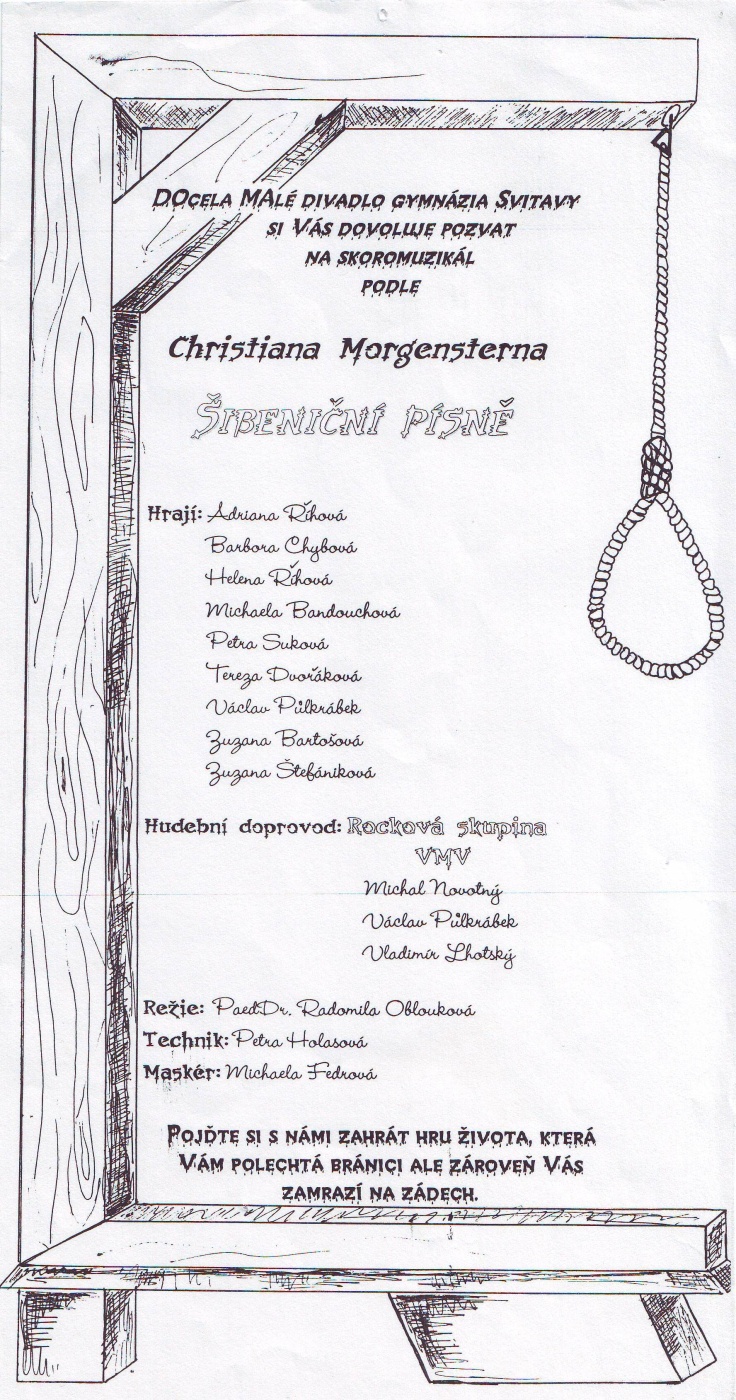 DOCELA MALÉ DIVADLO GYMNÁZIA SVITAVY
SI VÁS DOVOLUJE POZVAT
NA SKOROMUZIKÁL
PODLE
Christiana Morgensterna
ŠIBENIČNÍ PÍSNĚ
Hrají: Adriana Říhová
Barbora Chybová
Helena Říhová
Michaela Bandouchová
Petra Suková
Tereza Dvořáková
Václav Půlkrábek
Zuzana Bartošová
Zuzana Štefániková
Hudební doprovod: Rocková skupina
VMV
Michal Novotný
Václav Půlkrábek
Vladimír Lhotský
Režie: PaedDr. Radomila Oblouková
Technik: Petra Holasová
Maskér: Michaela Fedrová
POJĎTE SI S NÁMI ZAHRÁT HRU ŽIVOTA, KTERÁ
VÁM POLECHTÁ BRÁNICI ALE ZÁROVEŇ VÁS
ZAMRAZÍ NA ZÁDECH.